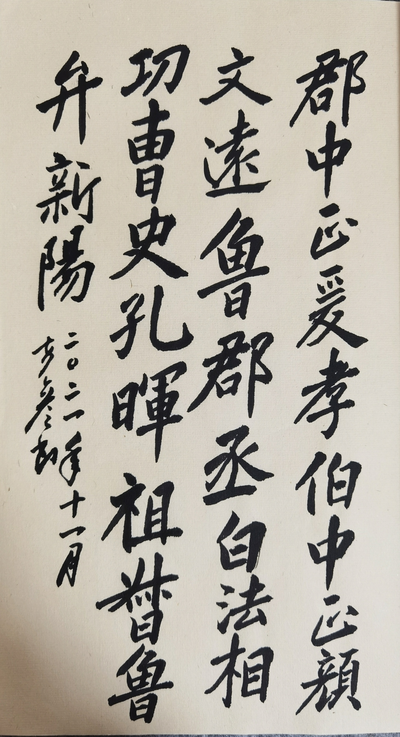 郡中正爰孝伯中正顔
文遠魯郡丞白法相
功曹史孔暉祖督魯
弁新陽
二〇二一年十一月